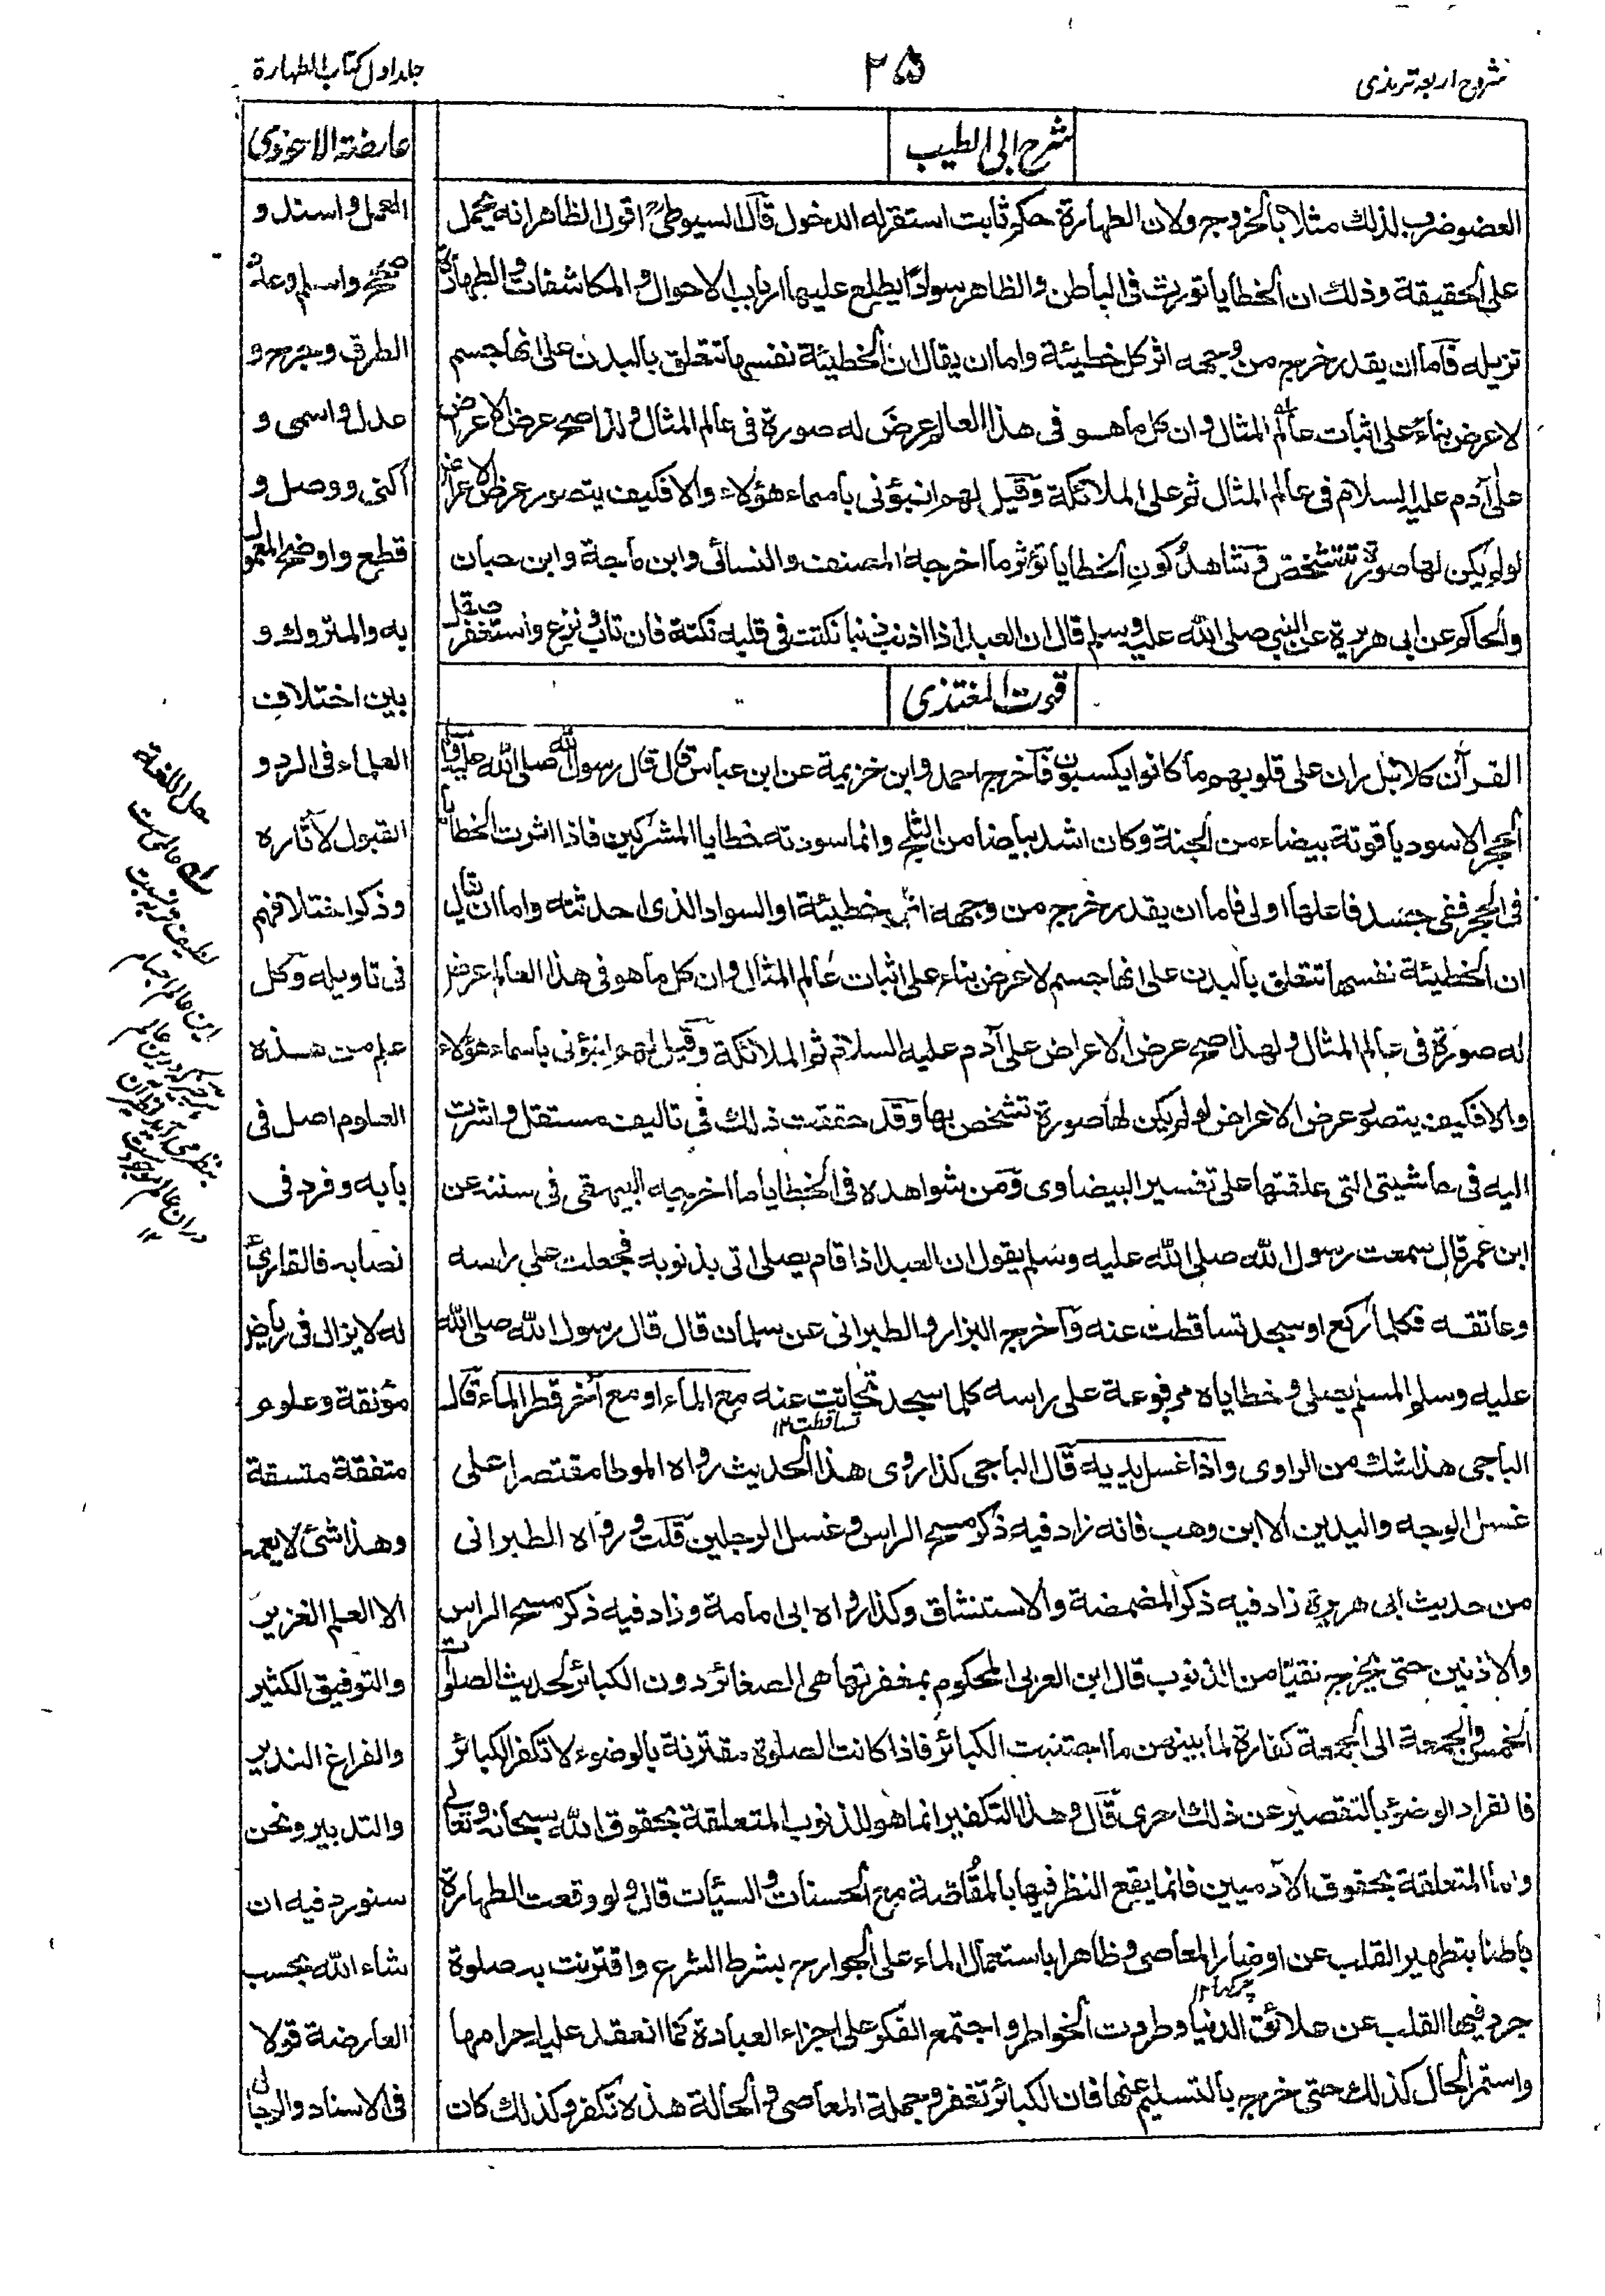 شروح اربعہ ترمذی
۲۵
جلد اول کتاب الطہارة
شرح ابی الطیب
العضو ضرب لذلك مثلا بالخروج ولان الطهارة حكم ثابت استقر له الدخول قال السيوطیؒ اقول الظاهر انه يحمل
على الحقيقة وذلك ان الخطايا تورث فی الباطن والظاهر سوادًا يطلع عليها ارباب الاحوال والمكاشفات والطهارة
تزيله فاما ان يقدر خرج من وجهه اثر كل خطيئة واما ان يقال ان الخطيئة نفسها تتعلق بالبدن على انها جسم
لا عرض بناءً على اثبات عالم المثال وان كل ما هو فی هذا العالم عرض له صورة فی عالم المثال ولذا صح عرض الاعراض
على آدم عليه السلام فی عالم المثال ثم على الملائكة وقيل لهم انبؤنی باسماء هؤلاء والا فكيف يتصور عرض الاعراض
لو لم يكن لها صورة تتشخص وشاهد كون الخطايا تؤثر ما اخرجه المصنف والنسائی وابن ماجة وابن حبان
والحاكم عن ابی هريرة عن النبی صلى الله عليه وسلم قال ان العبد اذا اذنب ذنبا نكتت فی قلبه نكتة فان تاب ونزع واستغفر صقل
قوت المغتذی
القرآن كلا بل ران على قلوبهم ما كانوا يكسبون فاخرج احمد وابن خزيمة عن ابن عباس قال قال رسول الله صلى الله عليه وسلم
الحجر الاسود ياقوتة بيضاء من الجنة وكان اشد بياضا من الثلج وانما سودته خطايا المشركين فاذا اثرت الخطايا
فی الحجر ففی جسد فاعلها اولى فاما ان يقدر خرج من وجهه اثر خطيئة او السواد الذی احدثته واما ان يقال
ان الخطيئة نفسها تتعلق بالبدن على انها جسم لا عرض بناء على اثبات عالم المثال وان كل ما هو فی هذا العالم عرض
له صورة فی عالم المثال ولهذا صح عرض الاعراض على آدم عليه السلام ثم الملائكة وقيل لهم انبؤنی باسماء هؤلاء
والا فكيف يتصور عرض الاعراض لو لم يكن لها صورة تشخص بها وقد حققت ذلك فی تاليف مستقل واشرت
اليه فی حاشيتی التی علقتها على تفسير البيضاوی ومن شواهده فی الخطايا ما اخرجه البيهقی فی سننه عن
ابن عمر قال سمعت رسول الله صلى الله عليه وسلم يقول ان العبد اذا قام يصلی اتی بذنوبه فجعلت علی راسه
وعاتقه فكلما ركع او سجد تساقطت عنه واخرج البزار والطبرانی عن سلمان قال قال رسول الله صلى الله
عليه وسلم المسلم يصلی وخطاياه مرفوعة على راسه كلما سجد تحاتت عنه مع الماء او مع آخر قطر الماء قال
تساقطت ۱۲
الباجی هذا شك من الراوی واذا غسل يديه قال الباجی كذا روی هذا الحديث رواه الموطا مقتصرا على
غسل الوجه واليدين الا ابن وهب فانه زاد فيه ذكر مسح الراس وغسل الرجلين قلت ورواه الطبرانی
من حديث ابی هريرة زاد فيه ذكر المضمضة والاستنشاق وكذا رواه ابی امامة وزاد فيه ذكر مسح الراس
والاذنين حتى يخرج نقيًا من الذنوب قال ابن العربی المحكوم بمغفرتها هی الصغائر دون الكبائر لحديث الصلوات
الخمس والجمعة الى الجمعة كفارة لما بينهن ما اجتنبت الكبائر فاذا كانت الصلوة مقترنة بالوضوء لا تكفر الكبائر
فانفراد الوضوء بالتقصير عن ذلك احرى قال وهذا التكفير انما هو للذنوب المتعلقة بحقوق الله سبحانه وتعالى
واما المتعلقة بحقوق الآدميين فانما يقع النظر فيها بالمقاصة مع الحسنات والسيئات قال ولو وقعت الطهارة
باطنا بتطهير القلب عن اوضار المعاصی وظاهرا باستعمال الماء على الجوارح بشرط الشرع واقترنت به صلوة
جرد فيها القلب عن علائق الدنيا وطردت الخواطر واجتمع الفكر على اجزاء العبادة كما انعقد عليه احرامها
واستمر الحال كذلك حتى خرج بالتسليم عنها فان الكبائر تغفر وجملة المعاصی والحالة هذه لا تكفر وكذلك كان
عارضة الاحوذی
العمل واسند و
صحح واسلم وعد
الطرق وجرح و
عدل واسمی و
اكنی ووصل و
قطع واوضح المعمول
به والمتروك و
بين اختلاف
العلماء فی الرد و
القبول لآثاره
وذكر اختلافهم
فی تاويله وكل
علم من هذه
العلوم اصل فی
بابه وفرد فی
نصابه فالقارئ
له لا يزال فی رياض
مؤنقة وعلوم
متفقة متسقة
وهذا شئ لا يعمه
الا العلم الغزير
والتوفيق الكثير
والفراغ الندير
والتدبير ونحن
سنورد فيه ان
شاء الله بحسب
العارضة قولا
فی الاسناد والرجال
حل اللغة